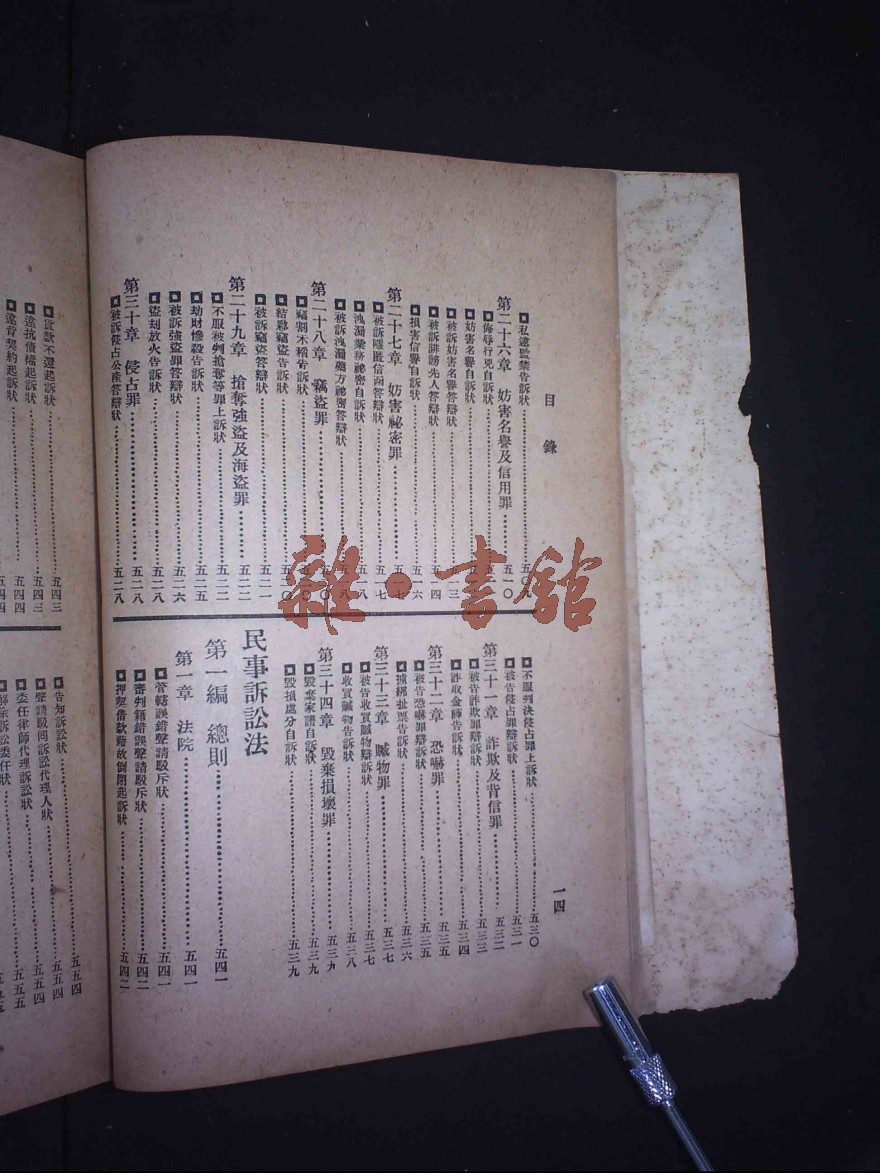 目錄
一四
私逮監禁告訴狀
第二十六章 妨害名譽及信用罪 五一〇
侮辱行兇自訴狀
妨害名譽自訴狀
被訴妨害名譽答辯狀
被訴誹謗先人答辯狀 五一四
損害信譽自訴狀 五一六
第二十七章 妨害祕密罪
被訴隱匿信函答辯狀 五一七
洩漏業務祕密自訴狀
被訴洩漏藥方祕密答辯狀
第二十八章 竊盜罪
竊割禾稻告訴狀
結夥竊盜告訴狀
被訴竊盜答辯狀 五二一
第二十九章 搶奪強盜及海盜罪 五二二
不服被判搶奪等罪上訴狀 五二二
劫財慘殺告訴狀 五二五
被訴強盜罪答辯狀 五二六
盜刦放火告訴狀 五二八
第三十章 侵占罪 五二八
被訴侵占公產答辯狀 五二八
不服判決侵占罪上訴狀 五三〇
被告侵占罪辯訴狀 五三一
第三十一章 詐欺及背信罪 五三二
被告詐欺罪辯訴狀 五三三
詐收金飾告訴狀 五三四
第三十二章 恐嚇罪 五三五
被告恐嚇罪辯訴狀 五三五
擄綁扯票告訴狀 五三六
第三十三章 贓物罪 五三七
被告收買贓物辯訴狀 五三七
收買贓物告訴狀 五三八
第三十四章 毀棄損壞罪 五三九
毀棄家譜自訴狀 五三九
毀損處分自訴狀 五三九
民事訴訟法
第一編 總則 五四一
第一章 法院 五四一
管轄誤錯聲請駁斥狀 五四一
審判籍錯誤聲請駁斥狀 五四二
押契借款藉故倒閉起訴狀 五四二
貨款不還起訴狀 五四三
違抗債權起訴狀 五四三
違背契約起訴狀 五四四
告知訴訟狀 五五四
聲請駁回訴訟代理人狀 五五四
委任律師代理訴訟狀 五五五
解除訴訟委任狀
雜·書館